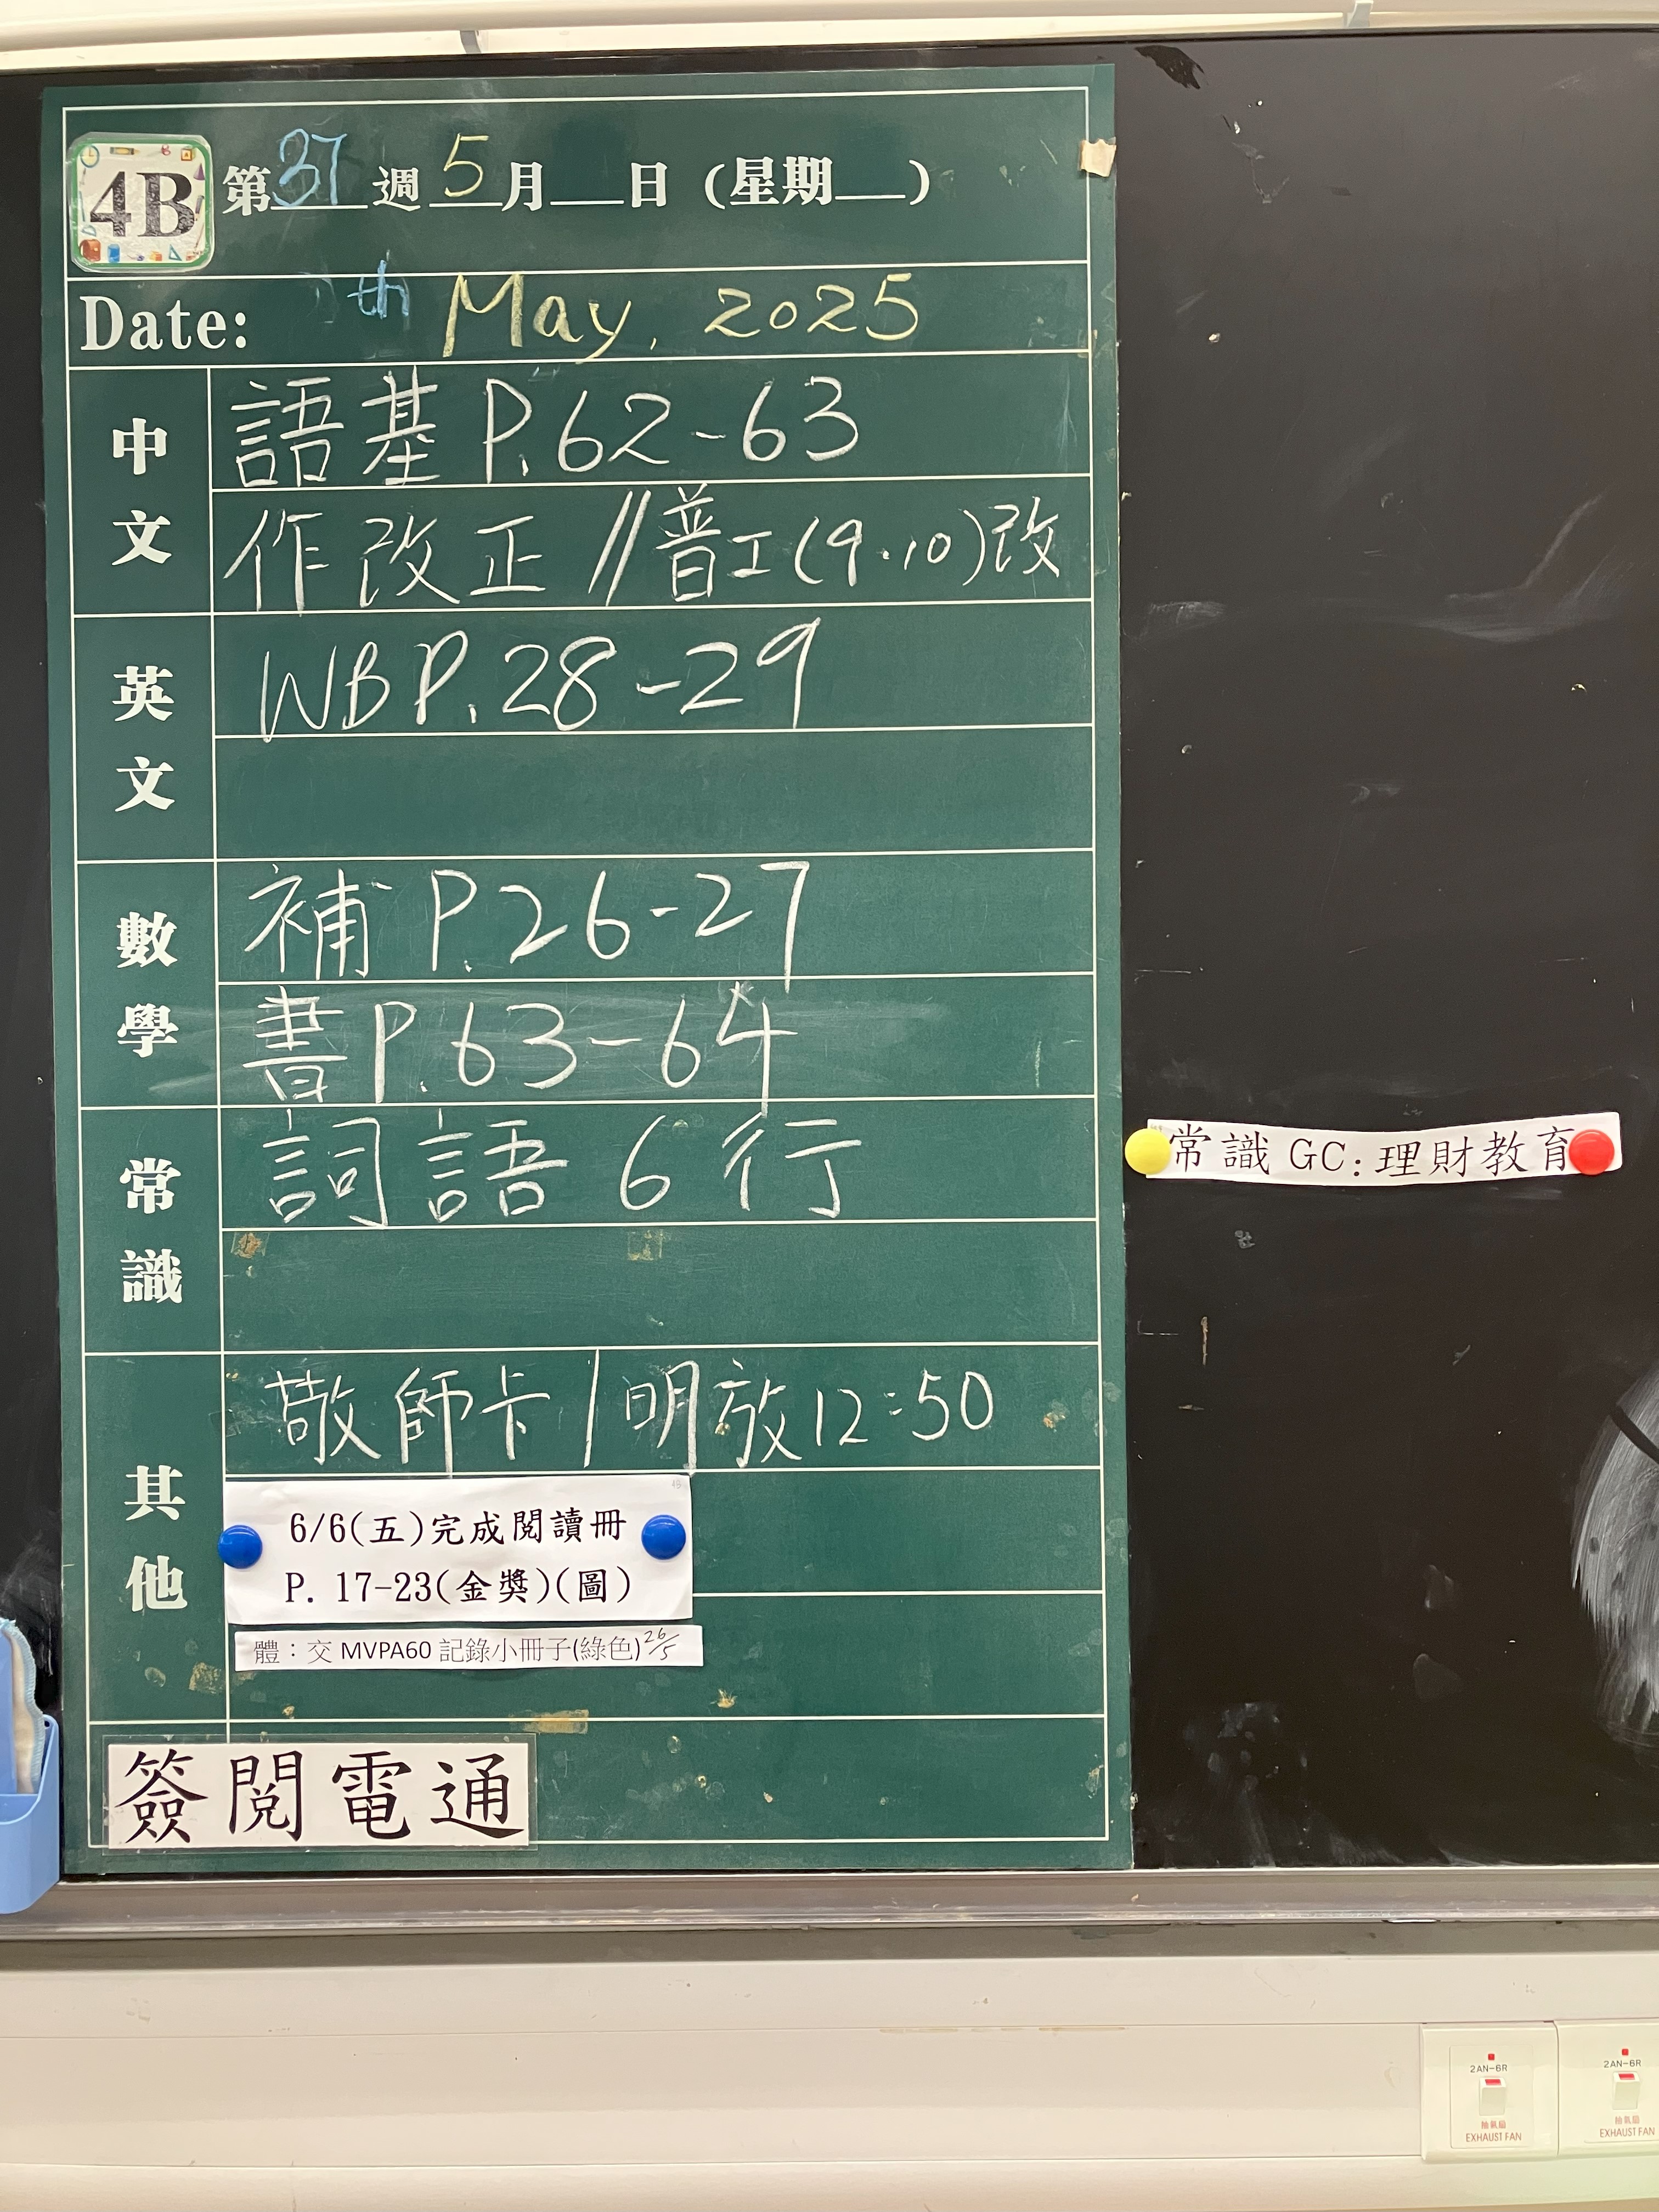 4B
第37週5月__日(星期__)
Date: th May, 2025
中文
語基 P.62-63
作改正 // 普工(9.10)改
英文
WB P.28-29
數學
補 P.26-27
書 P.63-64
常識
詞語 6 行
常識 GC:理財教育
其他
敬師卡 / 明放 12:50
6/6(五)完成閱讀冊
P. 17-23(金獎)(圖)
體:交 MVPA60 記錄小冊子(綠色) 26/5
簽閱電通
2AN-6R
抽氣扇
EXHAUST FAN
2AN-6R
抽氣扇
EXHAUST FAN